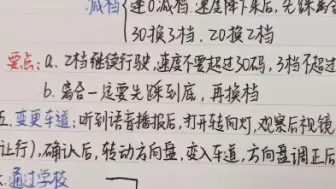 减档 速0减档.速度降下来后,先踩离合
30换3档. 20换2档
要点: a. 2档继续行驶,速度不要超过30码, 3档不过
b. 离合一定要先踩到底,再换档
五.变更车道: 听到语音播报后,打开转向灯,观察后视镜
让行),确认后,转动方向盘,变入车道,方向盘调正后
通过学校